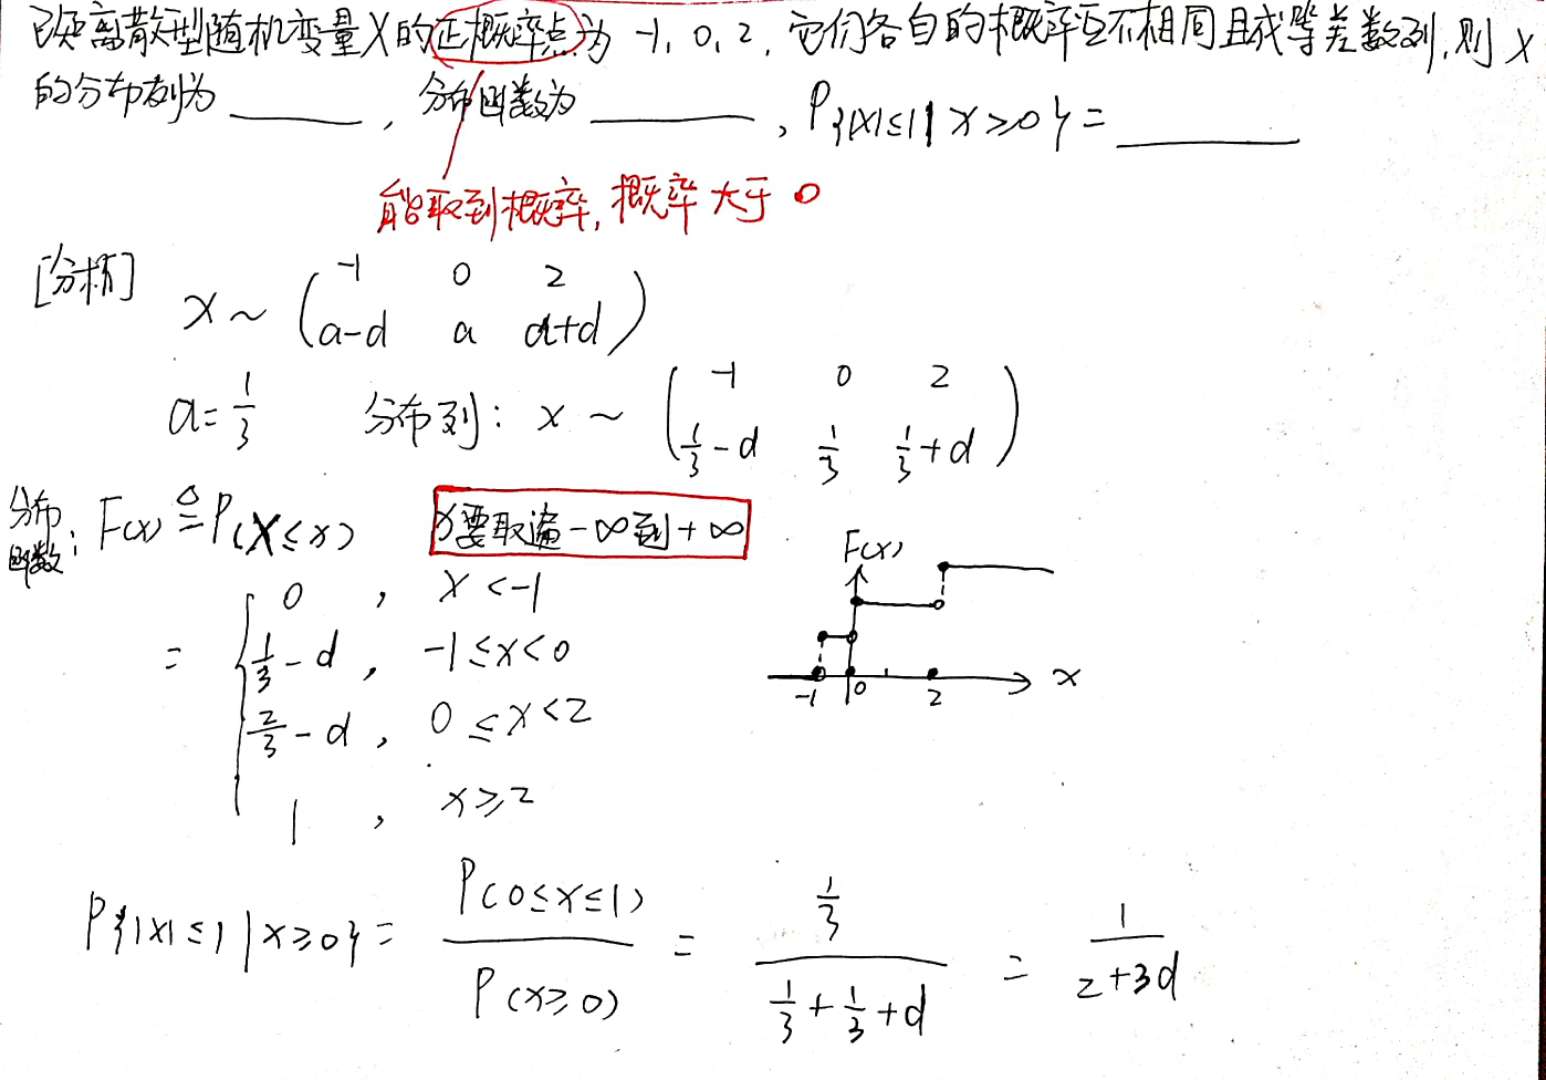 已知离散型随机变量X的正概率点为 -1, 0, 2, 它们各自的概率互不相同且成等差数列, 则 X
的分布列为 ______, 分布函数为 ______, P{|X|≤1 | X≥0} = ______
能取到概率, 概率大于0
[分析]
X ~ ( -1 0 2
a-d a a+d )
a = 1/3 分布列: X ~ ( -1 0 2
1/3-d 1/3 1/3+d )
分布函数: F(x) ≜ P(X≤x) x要取遍 -∞到+∞
= { 0 , x < -1
1/3 - d , -1 ≤ x < 0
2/3 - d , 0 ≤ x < 2
1 , x ≥ 2
F(x)
-1 0 2 x
P{|X|≤1 | X≥0} = P(0≤X≤1) / P(X≥0) = (1/3) / (1/3 + 1/3 + d) = 1 / (2+3d)